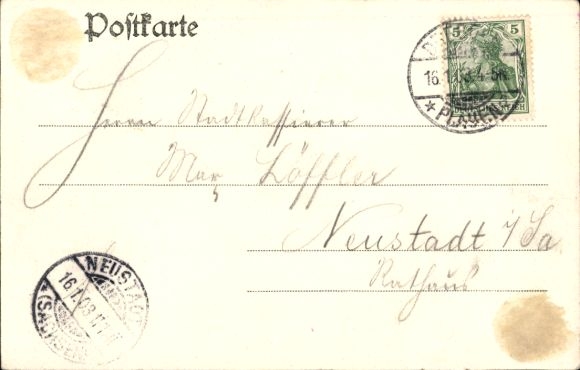 Postkarte
5 5
16.1. 03. 4-5N
* PLAUEN
Herrn Stadtkassierer
Max Löffler
Neustadt i/Sa
Rathaus
NEUSTADT
16.1.03.
(SACHSEN)